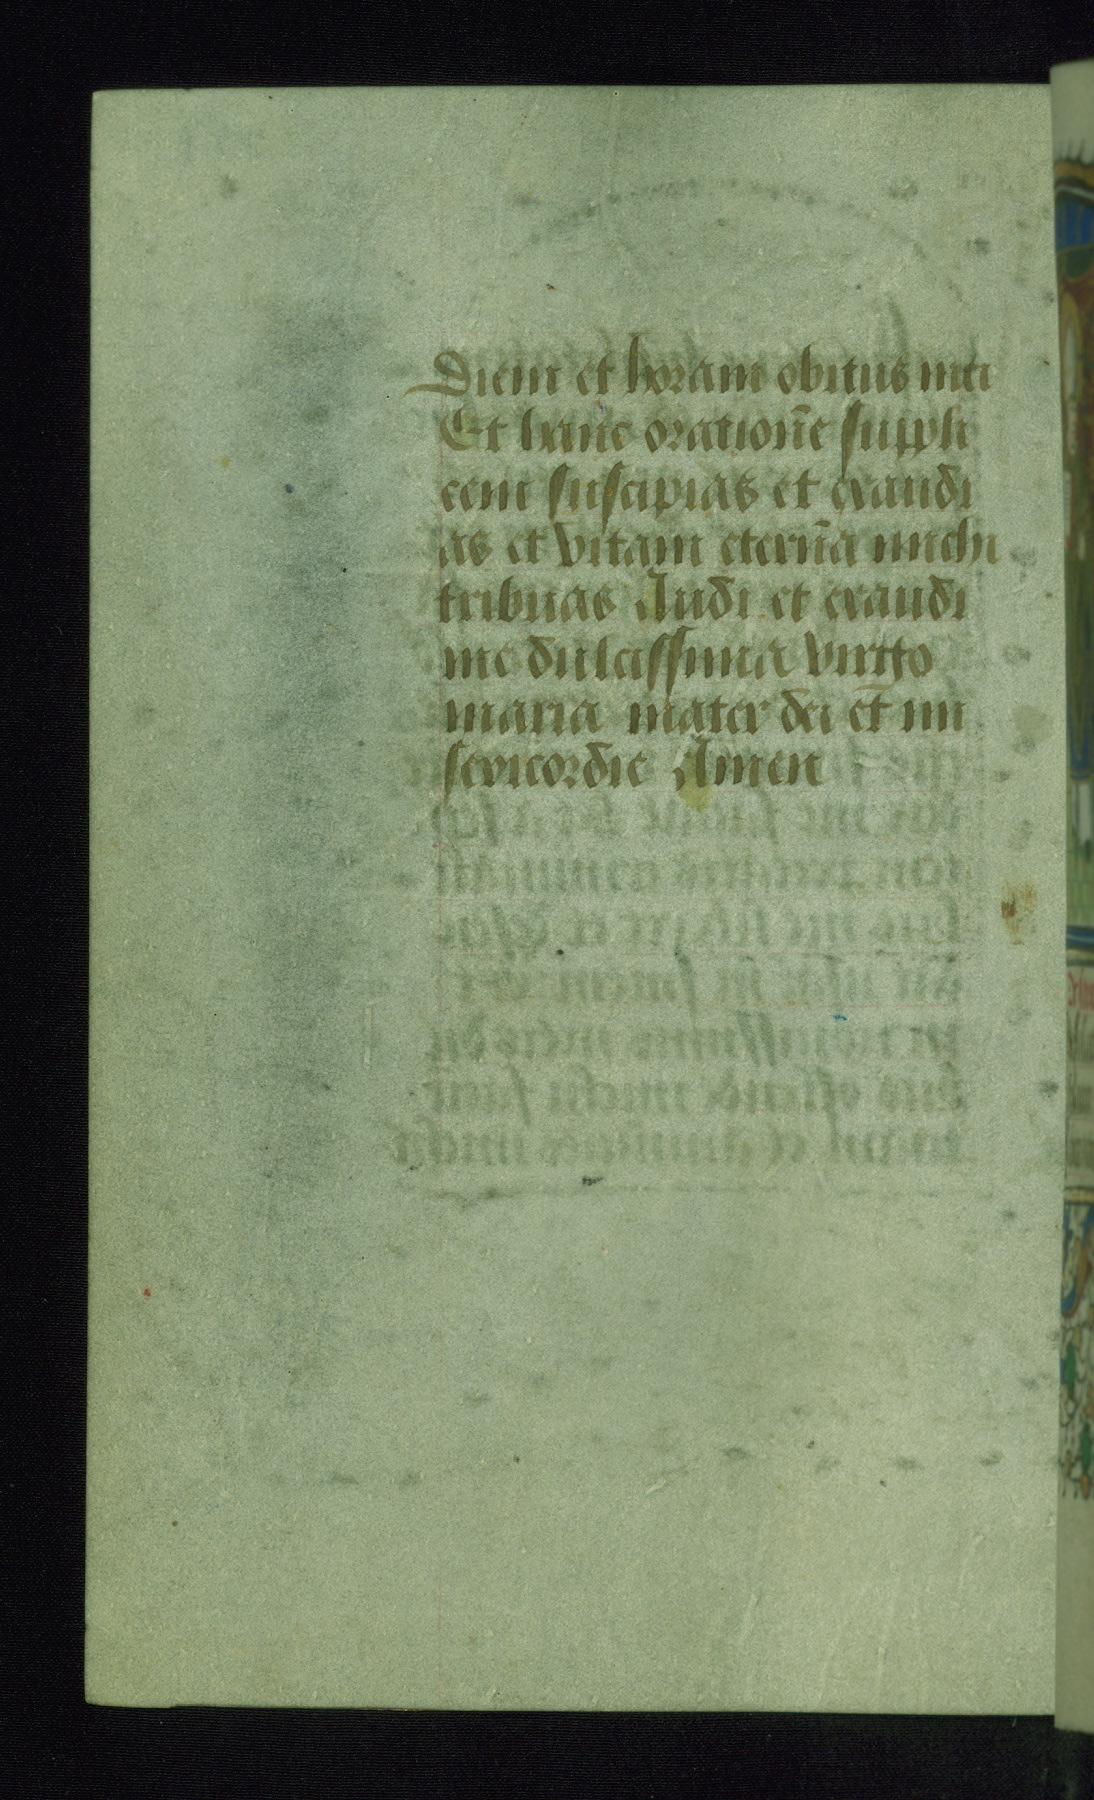 Diem et horam obitus mei
Et hanc orationē suppli
cem suscipias et exaudi
as et vitam eternā michi
tribuas Audi et exaudi
me dulcissima virgo
maria mater dei et mi
sericordie Amen